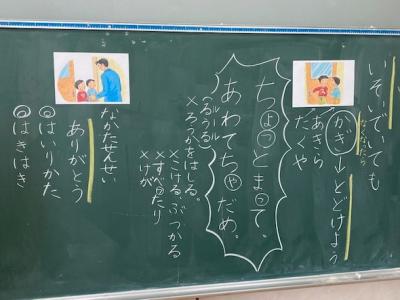 いそいでいても
なくなった
かぎ→とどけよう
あきら
たくや
ちょっとまって。
あわてちゃだめ。
ルール
(るうる)
×ろうかをはしる。
×こける ぶつかる
×すべったり
×けが
なかたせんせい
ありがとう
◎はいりかた
◎はきはき